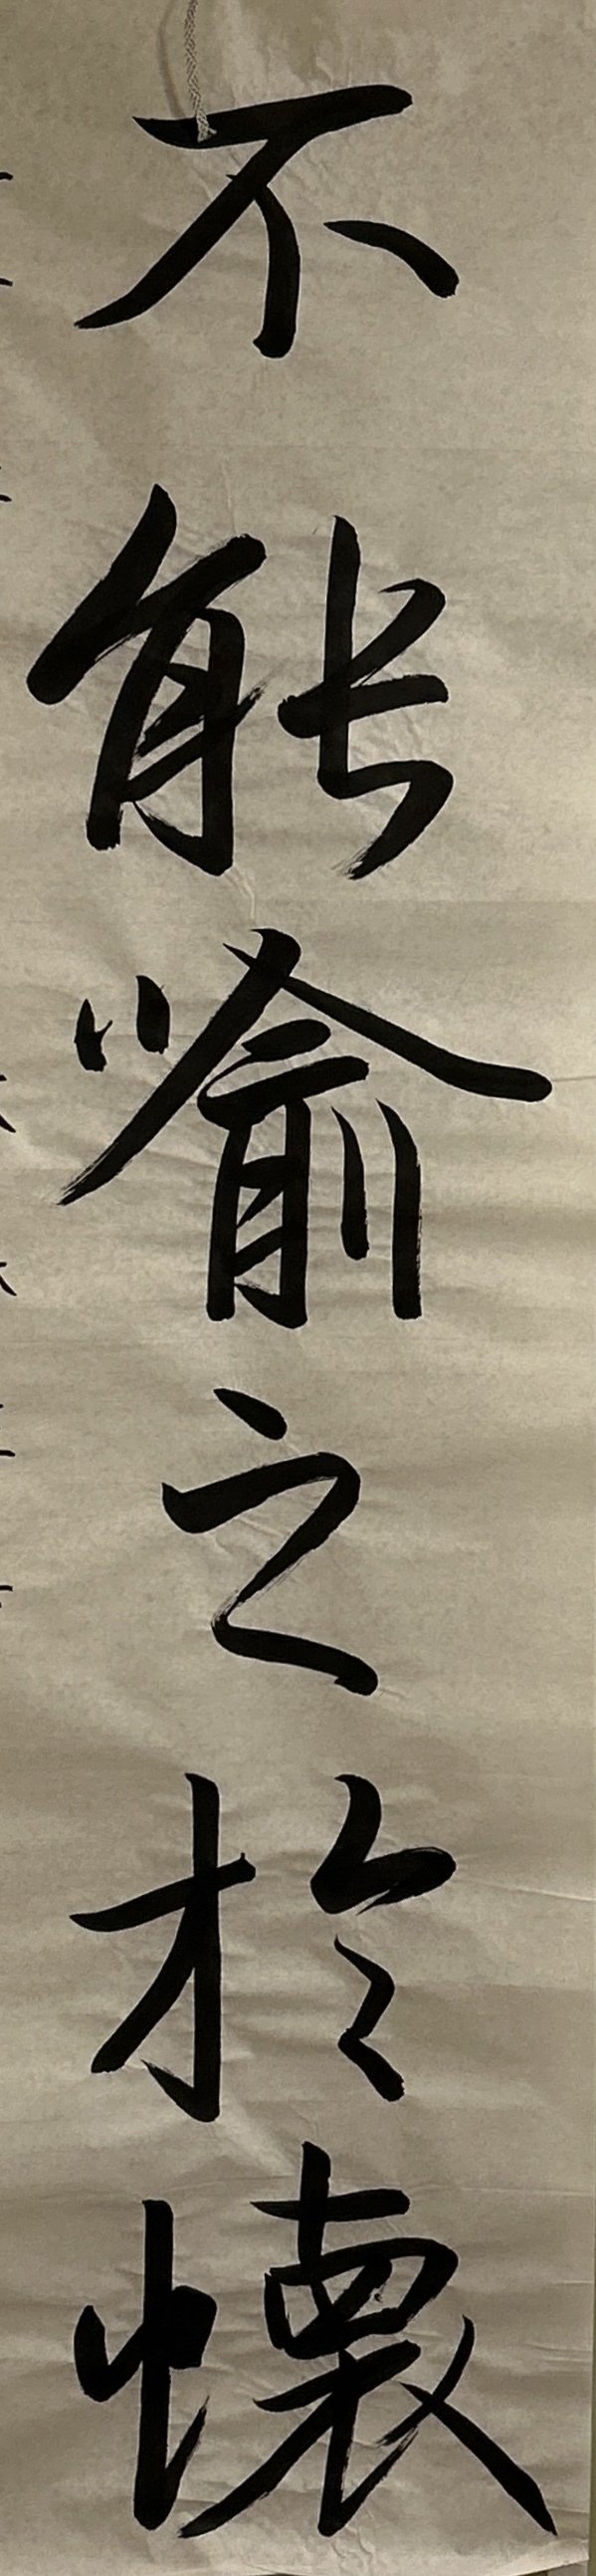 不能喻之於懷